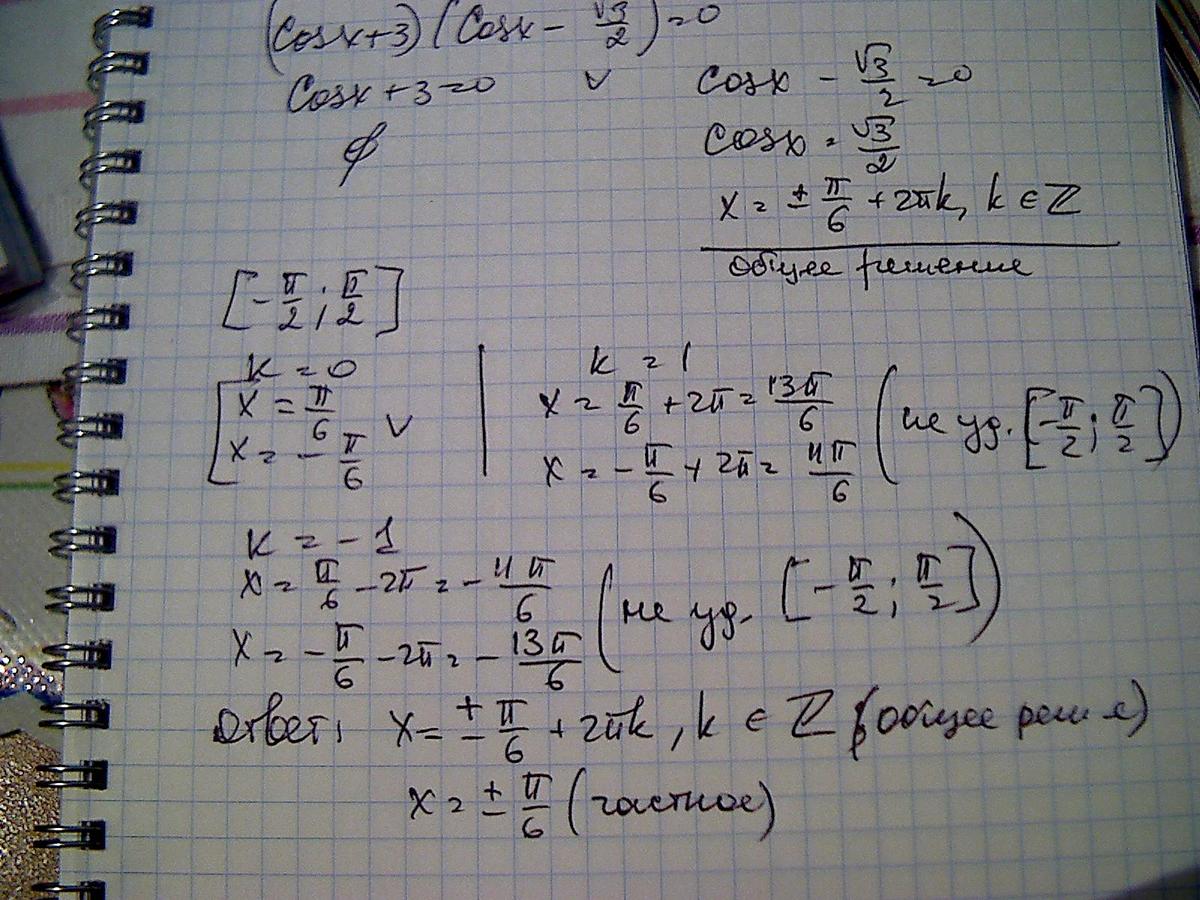 (Cosx+3)(Cosx - √3/2)=0
Cosx+3=0 ∨ Cosx - √3/2=0
∅ Cosx = √3/2
x = ± π/6 + 2πk, k ∈ Z
общее решение
[-π/2; π/2]
k = 0
[x = π/6
x = - π/6 ∨
k = 1
x = π/6 + 2π = 13π/6
x = - π/6 + 2π = 11π/6 (не уд. [-π/2; π/2])
k = -1
x = π/6 - 2π = - 11π/6
x = - π/6 - 2π = - 13π/6 (не уд. [-π/2; π/2])
Ответ: x = ± π/6 + 2πk, k ∈ Z (общее реш-е)
x = ± π/6 (частное)